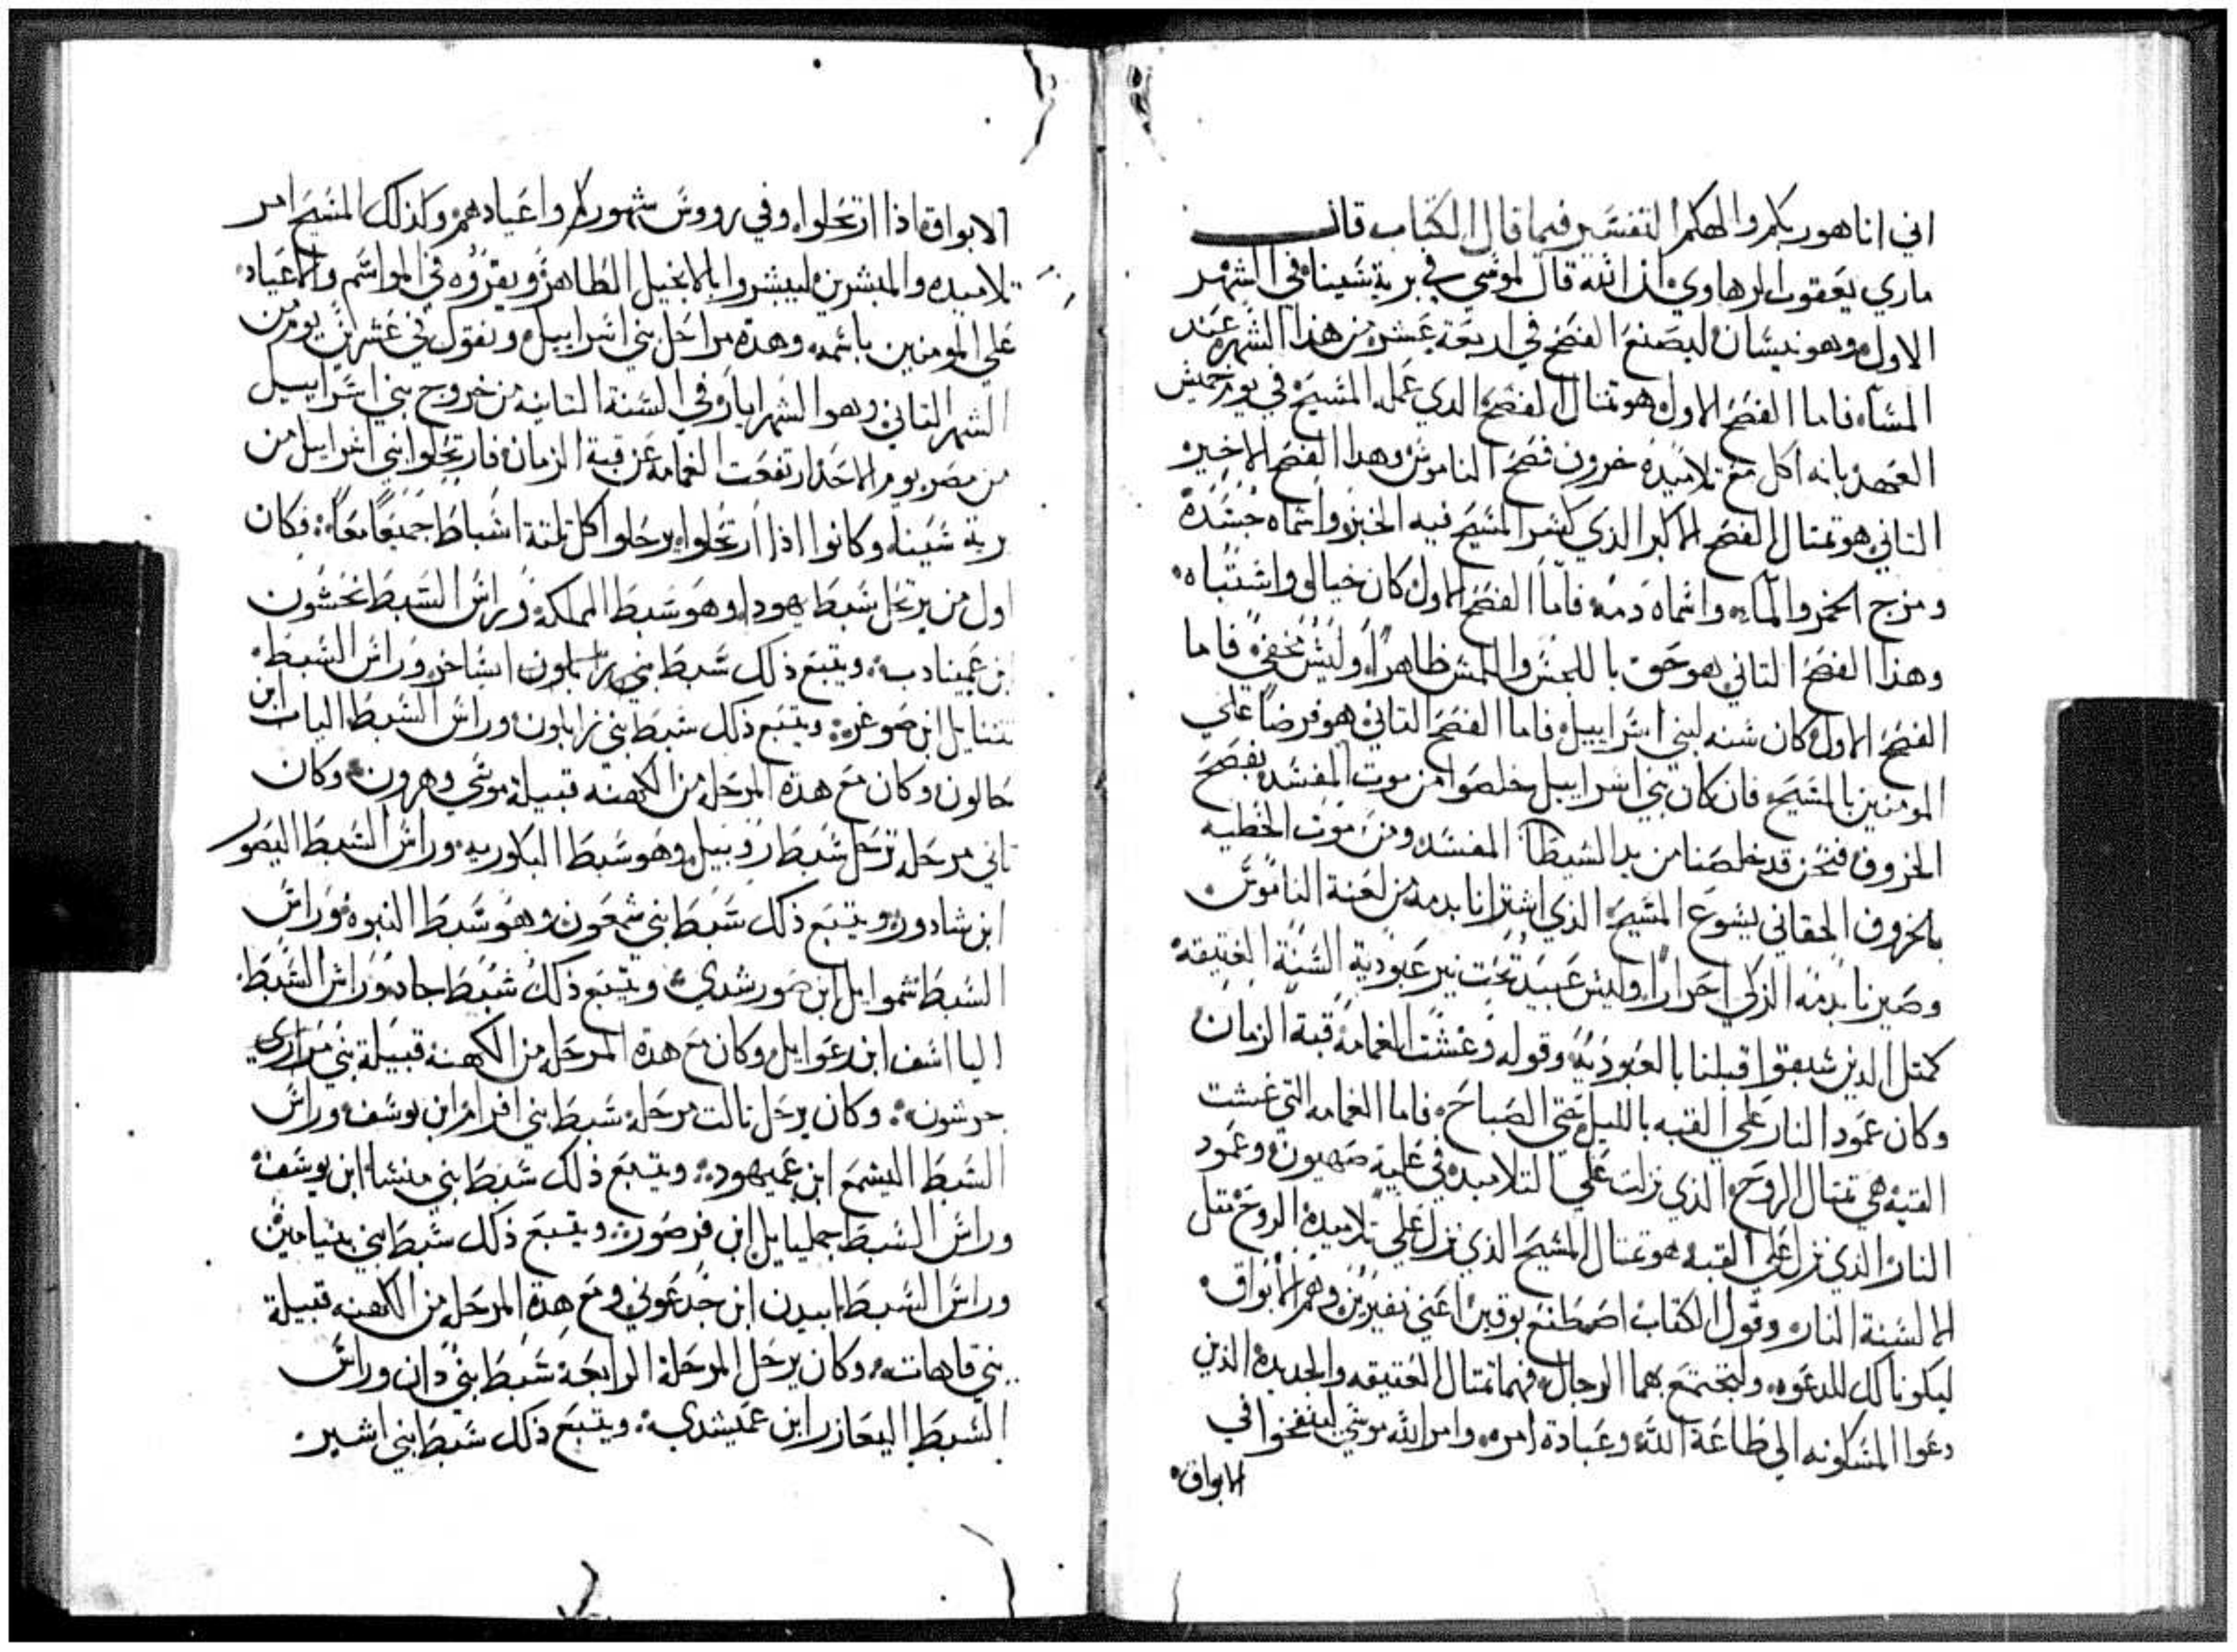 اني انا هو ربكم والهكم التفسير فيما قال الكتاب قال
ماري يعقوب الرهاوي ان الله قال لموسي في برية سينا في الشهر
الاول وهو نيسان ليصنع الفصح في اربعة عشر من هذا الشهر عند
المسا، فاما الفصح الاول هو تمتال الفصح الدي عمله المسيح في يوم خميس
العهد بانه اكل مع تلاميده خروف فصح الناموس وهدا الفصح الاخير
التاني هو تمتال الفصح الاكبر الذي كسر المسيح فيه الخبز واسماه جسده
ومزج الخمر والماء واسماه دمه فاما الفصح الاول كان خيالي واشتباه
وهذا الفصح التاني هو حق باللمس والحس ظاهرا وليس مخفي فاما
الفصح الاول كان سنه لبني اسراييل فاما الفصح التاني هو فرضا علي
المومنين بالمسيح فان كان بني اسراييل خلصوا من موت المفسد بفصح
الخروف فنحن قد خلصنا من يد الشيطان المفسد ومن موت الخطيه
بالخروف الحقاني يسوع المسيح الذي اشترانا بدمه من لعنة الناموس
وصيرنا بدمه الزكي احرارا وليس عبيد تحت نير عبودية السنة العتيقه
كمتل الدين سبقوا قبلنا بالعبودية وقوله وغشت الغمامة قبة الزمان
وكان عمود النار علي القبه بالليل حتي الصباح فاما الغمامه التي غشت
القبه هي تمتال الروح الذي نزلت علي التلاميده في علية صهيون وعمود
النار الذي نزل علي القبه هو تمتال المسيح الذي نزل علي تلاميده الروح متل
السنة النار وقول الكتاب اصطنع بوقين اعني نفيرين وهم الابواق
ليكونا لك للدعوه ولتجتمع بهما الرجال فهما تمتال العتيقه والجديده الذين
دعوا المسكونه الي طاعة الله وعبادة امره وامر الله موسي لينفخوا في
الابواق
الابواق اذا ارتحلوا وفي رووس شهوركم واعيادهم وكذلك المسيح امر
تلاميده والمبشرين ليبشروا بالانجيل الطاهر ويقروه في المواسم والاعياد
علي المومنين باسمه وهده مراحل بني اسراييل ونقول في عشرين يوم من
الشهر التاني وهو الشهر ايار في السنة التانيه من خروج بني اسراييل
من مصر يوم الاحد ارتفعت الغمامه عن قبة الزمان فارتحلوا بني اسراييل من
برية سينا وكانوا اذا ارتحلوا يرحلوا كل تلتة اسباط جميعا معا فكان
اول من يرتحل سبط يهودا وهو سبط المملكه وراس السبط نحشون
ابن عميناداب ويتبع ذلك سبط بني ايساخر وراس السبط
نتنايل ابن صوغر ويتبع ذلك سبط بني زابلون وراس السبط الياب ابن
حالون وكان مع هده المرحله من الكهنه قبيلة موسي وهرون وكان
تاني مرحله ترحل سبط روبيل وهو سبط البكوريه وراس السبط اليصور
ابن شادور ويتبع ذلك سبط بني شمعون وهو سبط النبوه وراس
السبط شموايل ابن صورشدي ويتبع ذلك سبط جاد وراس السبط
الياسف ابن رعوايل وكان مع هده المرحله من الكهنة قبيلة بني مراري
جرشون وكان يرحل تالت مرحلة سبط بني افرام ابن يوسف وراس
السبط اليشمع ابن عميهود ويتبع ذلك سبط بني منشا ابن يوسف
وراس السبط جمليايل ابن فرصور ويتبع ذلك سبط بني بنيامين
وراس السبط ابيدن ابن جدعوني ومع هدة المرحله من الكهنه قبيلة
بني قاهات وكان يرحل المرحلة الرابعة سبط بني دان وراس
السبط اليعازر ابن عميشدي ويتبع ذلك سبط بني اشير